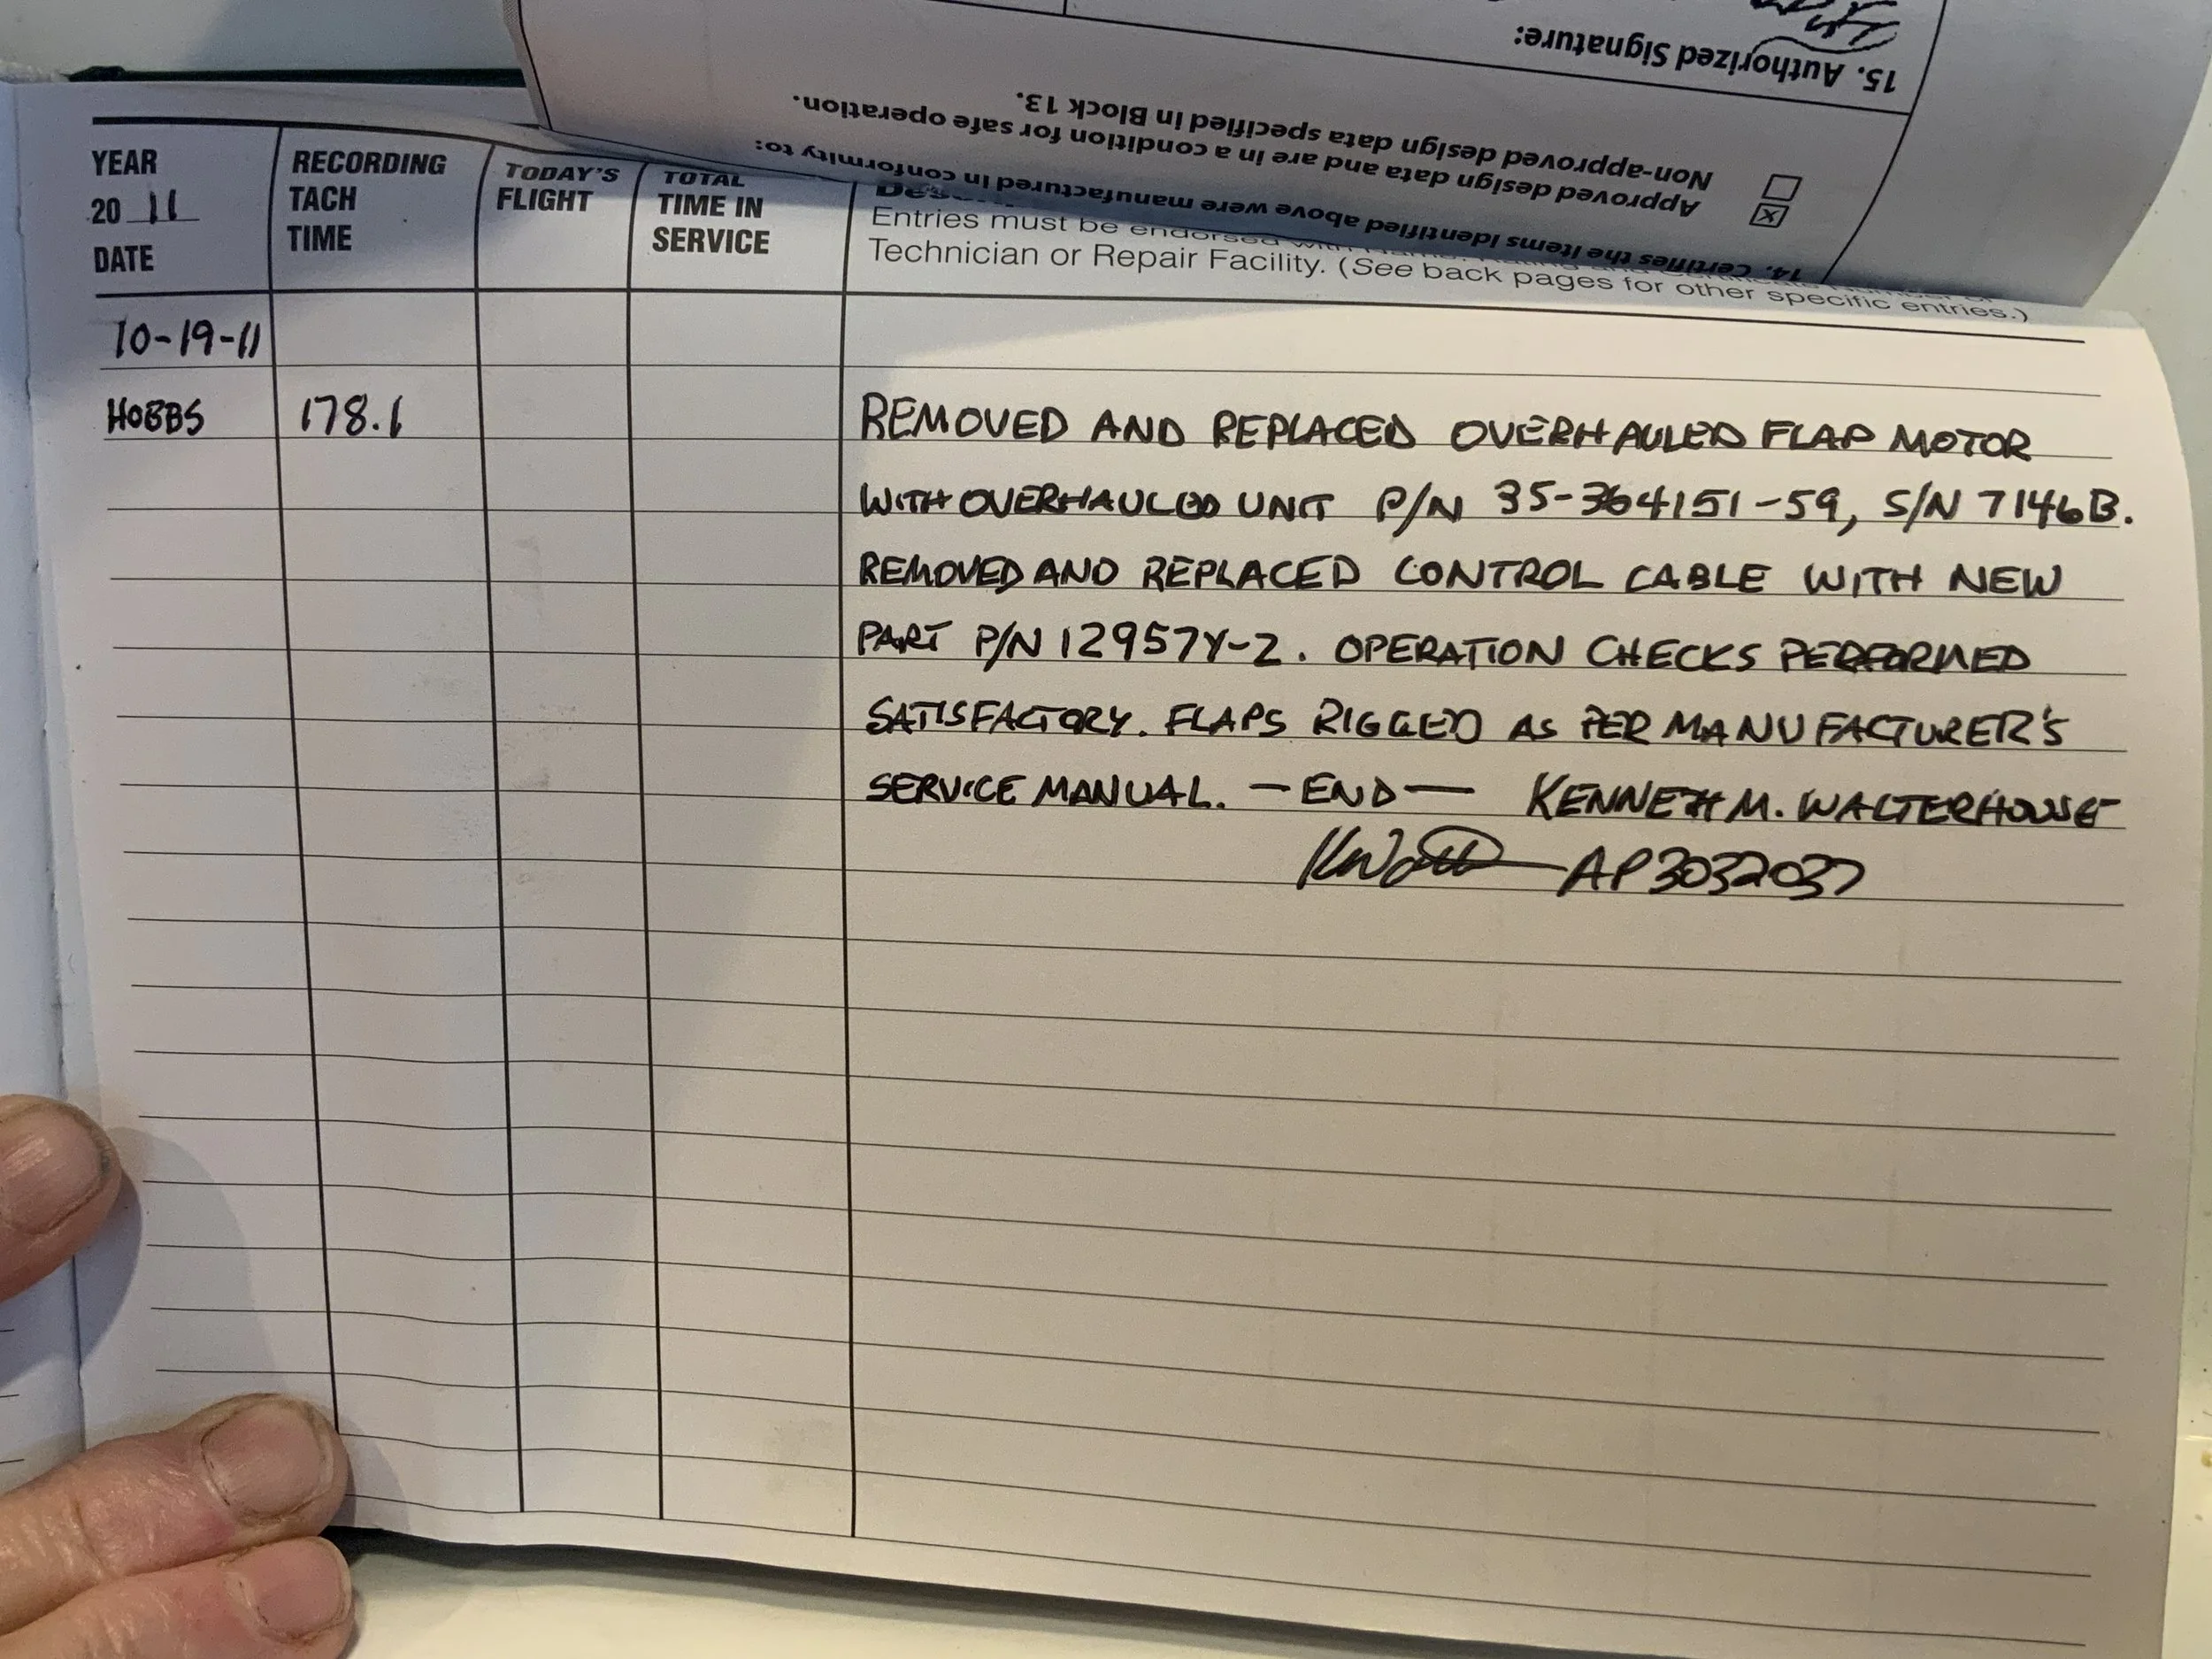 15. Authorized Signature:
Non-approved design data specified in Block 13.
Approved design data and are in a condition for safe operation.
14. Certifies the items identified above were manufactured in conformity to:
YEAR
20 11
DATE
RECORDING
TACH
TIME
TODAY'S
FLIGHT
TOTAL
TIME IN
SERVICE
Entries must be endorsed with
Technician or Repair Facility. (See back pages for other specific entries.)
10-19-11
HOBBS 178.1 REMOVED AND REPLACED OVERHAULED FLAP MOTOR
WITH OVERHAULED UNIT P/N 35-364151-59, S/N 7146B.
REMOVED AND REPLACED CONTROL CABLE WITH NEW
PART P/N 12957Y-2. OPERATION CHECKS PERFORMED
SATISFACTORY. FLAPS RIGGED AS PER MANUFACTURER'S
SERVICE MANUAL. — END — KENNETH M. WALTERHOUSE
AP3032037